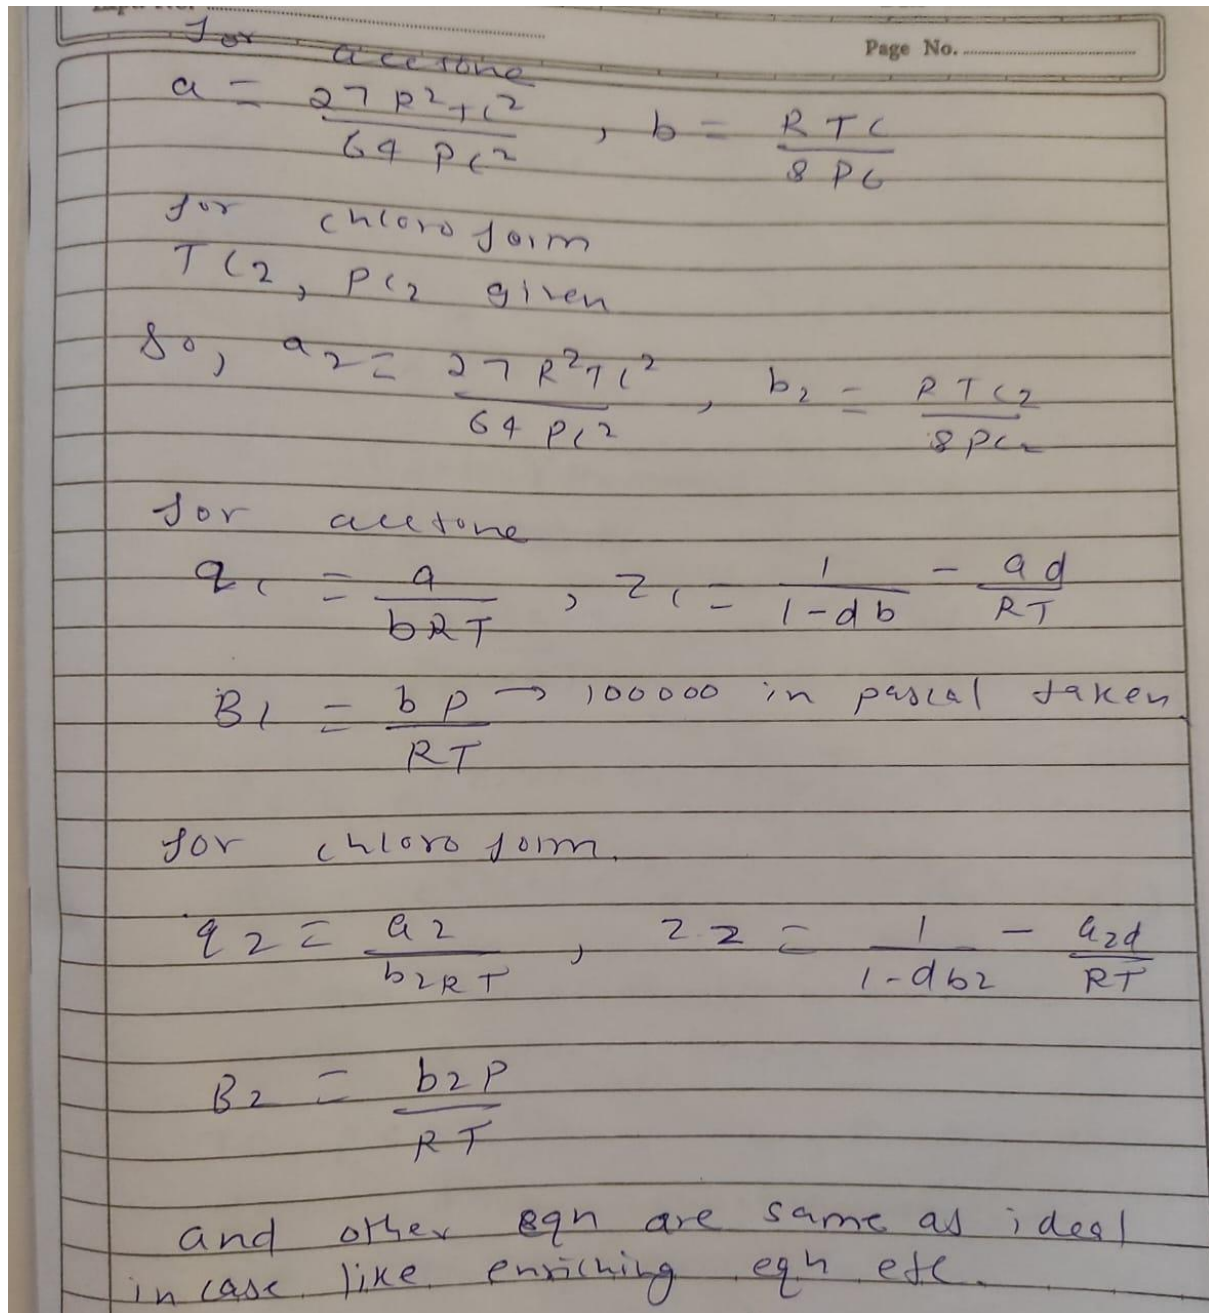 Page No.
for acetone
a = 27 R²Tc² / 64 Pc² , b = RTc / 8 Pc
for chloroform
Tc2, Pc2 given
So, a2 = 27 R²Tc² / 64 Pc² , b2 = RTc2 / 8Pc2
for acetone
q1 = a / bRT , Z1 = 1 / 1-db - ad / RT
B1 = bP / RT → 100000 in pascal taken
for chloroform.
q2 = a2 / b2RT , Z2 = 1 / 1-db2 - a2d / RT
B2 = b2P / RT
and other eqn are same as ideal
in case like enriching eqn etc.